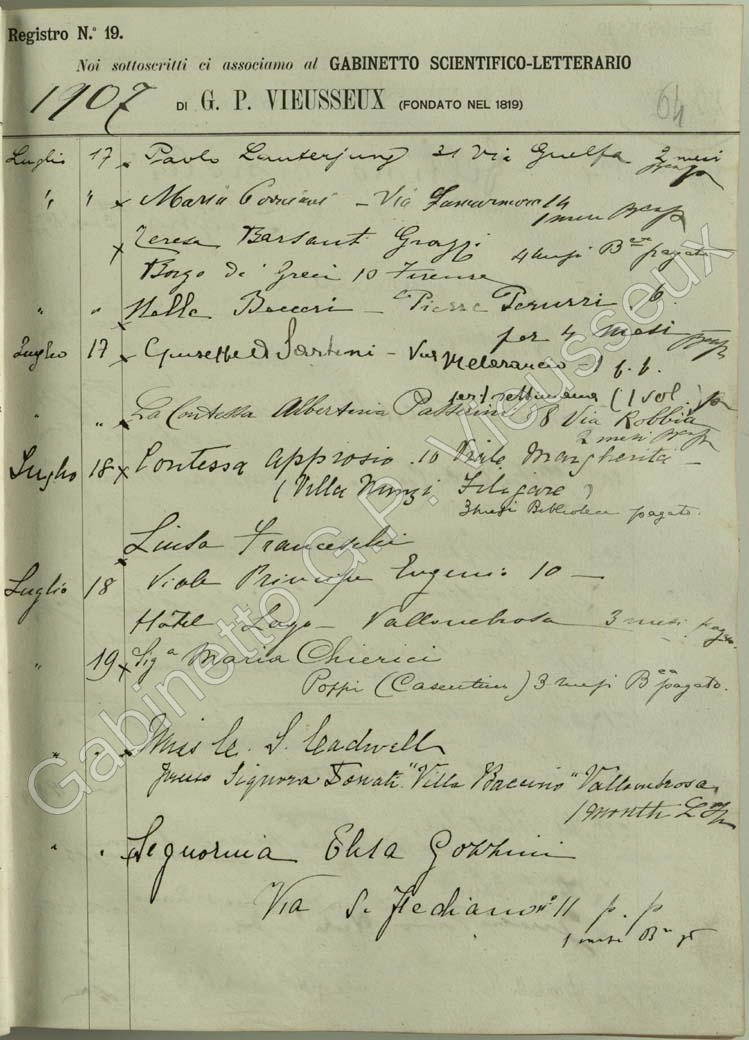 Registro N.° 19.
Noi sottoscritti ci associamo al GABINETTO SCIENTIFICO-LETTERARIO
1907 DI G. P. VIEUSSEUX (FONDATO NEL 1819)
64
Luglio 17 x Paolo Lauterjung 31 Via Guelfa 2 mesi
" " x Maria - Via Lamarmora 14
1 mese
x Teresa Barsanti Grazzi 4 mesi pagato
Borgo de' Greci 10 Firenze
" " x Nella - Peruzzi 6.
per 4 mesi
Luglio 17 x Giuseppe Sartini - Via Melarancio 1 p. p.
per 1 settimana (1 vol.)
" " x La Contessa Albertina Passerini 8 Via Robbia
2 mesi
Luglio 18 x Contessa Approsio 10 Viale Margherita -
(Villa Filigare)
3 mesi Biblioteca pagato.
x Luisa Franceschi
Luglio 18 Viale Principe Eugenio 10 -
Hôtel Lago - Vallombrosa 3 mesi pagato
" 19 x Sigᵃ Maria Chierici
Poppi (Casentino) 3 mesi Bᶜᵃ pagato.
" " x Miss S. Cadwell
presso Signora Donati "Villa Baccino" Vallombrosa
1 month
" " x Signorina Elisa Gozzini
Via S. Frediano N° 11 p. p.
1 mese
Gabinetto G.P. Vieusseux